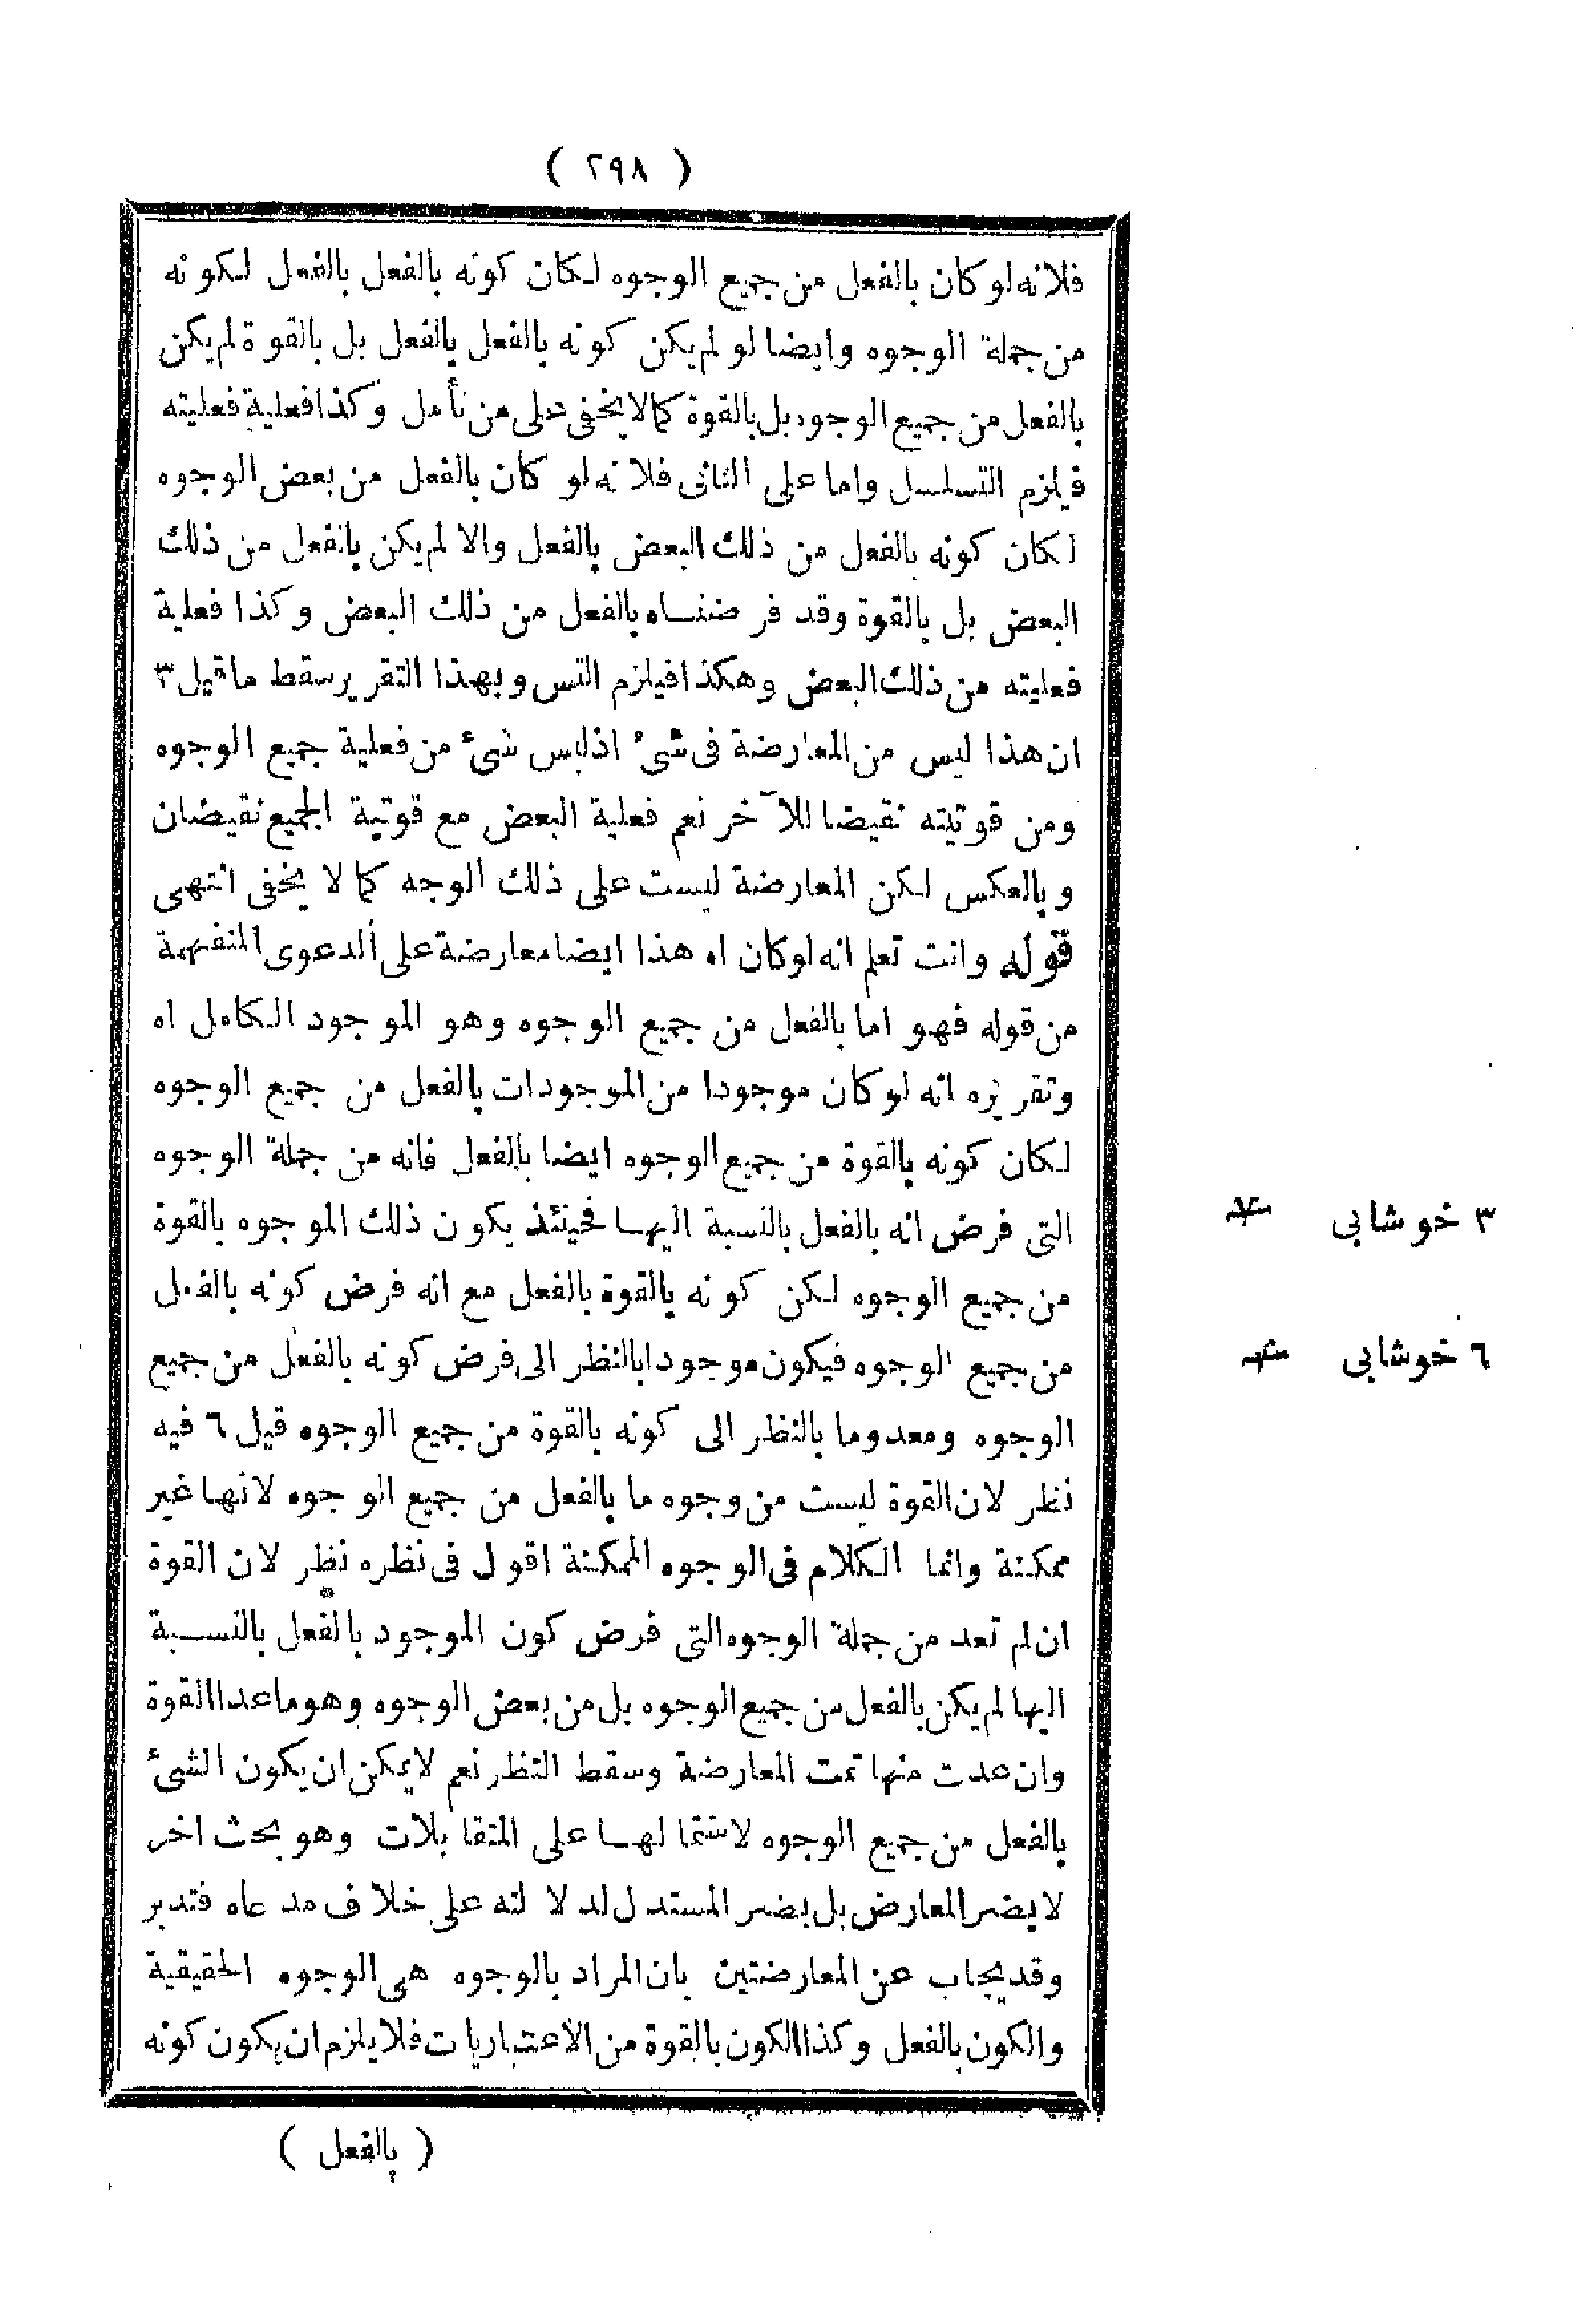 ( ٢٩٨ )
فلانه لو كان بالفعل من جميع الوجوه لكان كونه بالفعل بالفعل لكونه
من جملة الوجوه وايضا لو لم يكن كونه بالفعل بالفعل بل بالقوة لم يكن
بالفعل من جميع الوجوه بل بالقوة كما لا يخفى على من تأمل وكذا فعلية فعليته
فيلزم التسلسل واما على الثانى فلانه لو كان بالفعل من بعض الوجوه
لكان كونه بالفعل من ذلك البعض بالفعل والا لم يكن بالفعل من ذلك
البعض بل بالقوة وقد فرضناه بالفعل من ذلك البعض وكذا فعلية
فعليته من ذلك البعض وهكذا فيلزم التس وبهذا التقرير سقط ما قيل ٣
ان هذا ليس من المعارضة فى شئ اذ ليس شئ من فعلية جميع الوجوه
ومن قوتيته نقيضا للآخر نعم فعلية البعض مع قوتية الجميع نقيضان
وبالعكس لكن المعارضة ليست على ذلك الوجه كما لا يخفى انتهى
قوله وانت تعلم انه لو كان اه هذا ايضا معارضة على الدعوى المنفهمة
من قوله فهو اما بالفعل من جميع الوجوه وهو الموجود الكامل اه
وتقريره انه لو كان موجودا من الموجودات بالفعل من جميع الوجوه
لكان كونه بالقوة من جميع الوجوه ايضا بالفعل فانه من جملة الوجوه
التى فرض انه بالفعل بالنسبة اليها فحينئذ يكون ذلك الموجوه بالقوة
من جميع الوجوه لكن كونه بالقوة بالفعل مع انه فرض كونه بالفعل
من جميع الوجوه فيكون موجودا بالنظر الى فرض كونه بالفعل من جميع
الوجوه ومعدوما بالنظر الى كونه بالقوة من جميع الوجوه قيل ٦ فيه
نظر لان القوة ليست من وجوه ما بالفعل من جميع الوجوه لانها غير
ممكنة وانما الكلام فى الوجوه الممكنة اقول فى نظره نظر لان القوة
ان لم تعد من جملة الوجوه التى فرض كون الموجود بالفعل بالنسبة
اليها لم يكن بالفعل من جميع الوجوه بل من بعض الوجوه وهو ما عدا القوة
وان عدت منها تمت المعارضة وسقط النظر نعم لا يمكن ان يكون الشئ
بالفعل من جميع الوجوه لاشتمالها على المتقابلات وهو بحث اخر
لا يضر المعارض بل يضر المستدل لدلالته على خلاف مدعاه فتدبر
وقد يجاب عن المعارضتين بان المراد بالوجوه هى الوجوه الحقيقية
والكون بالفعل وكذا الكون بالقوة من الاعتباريات فلا يلزم ان يكون كونه
( بالفعل )
٣ خوشابى
٦ خوشابى